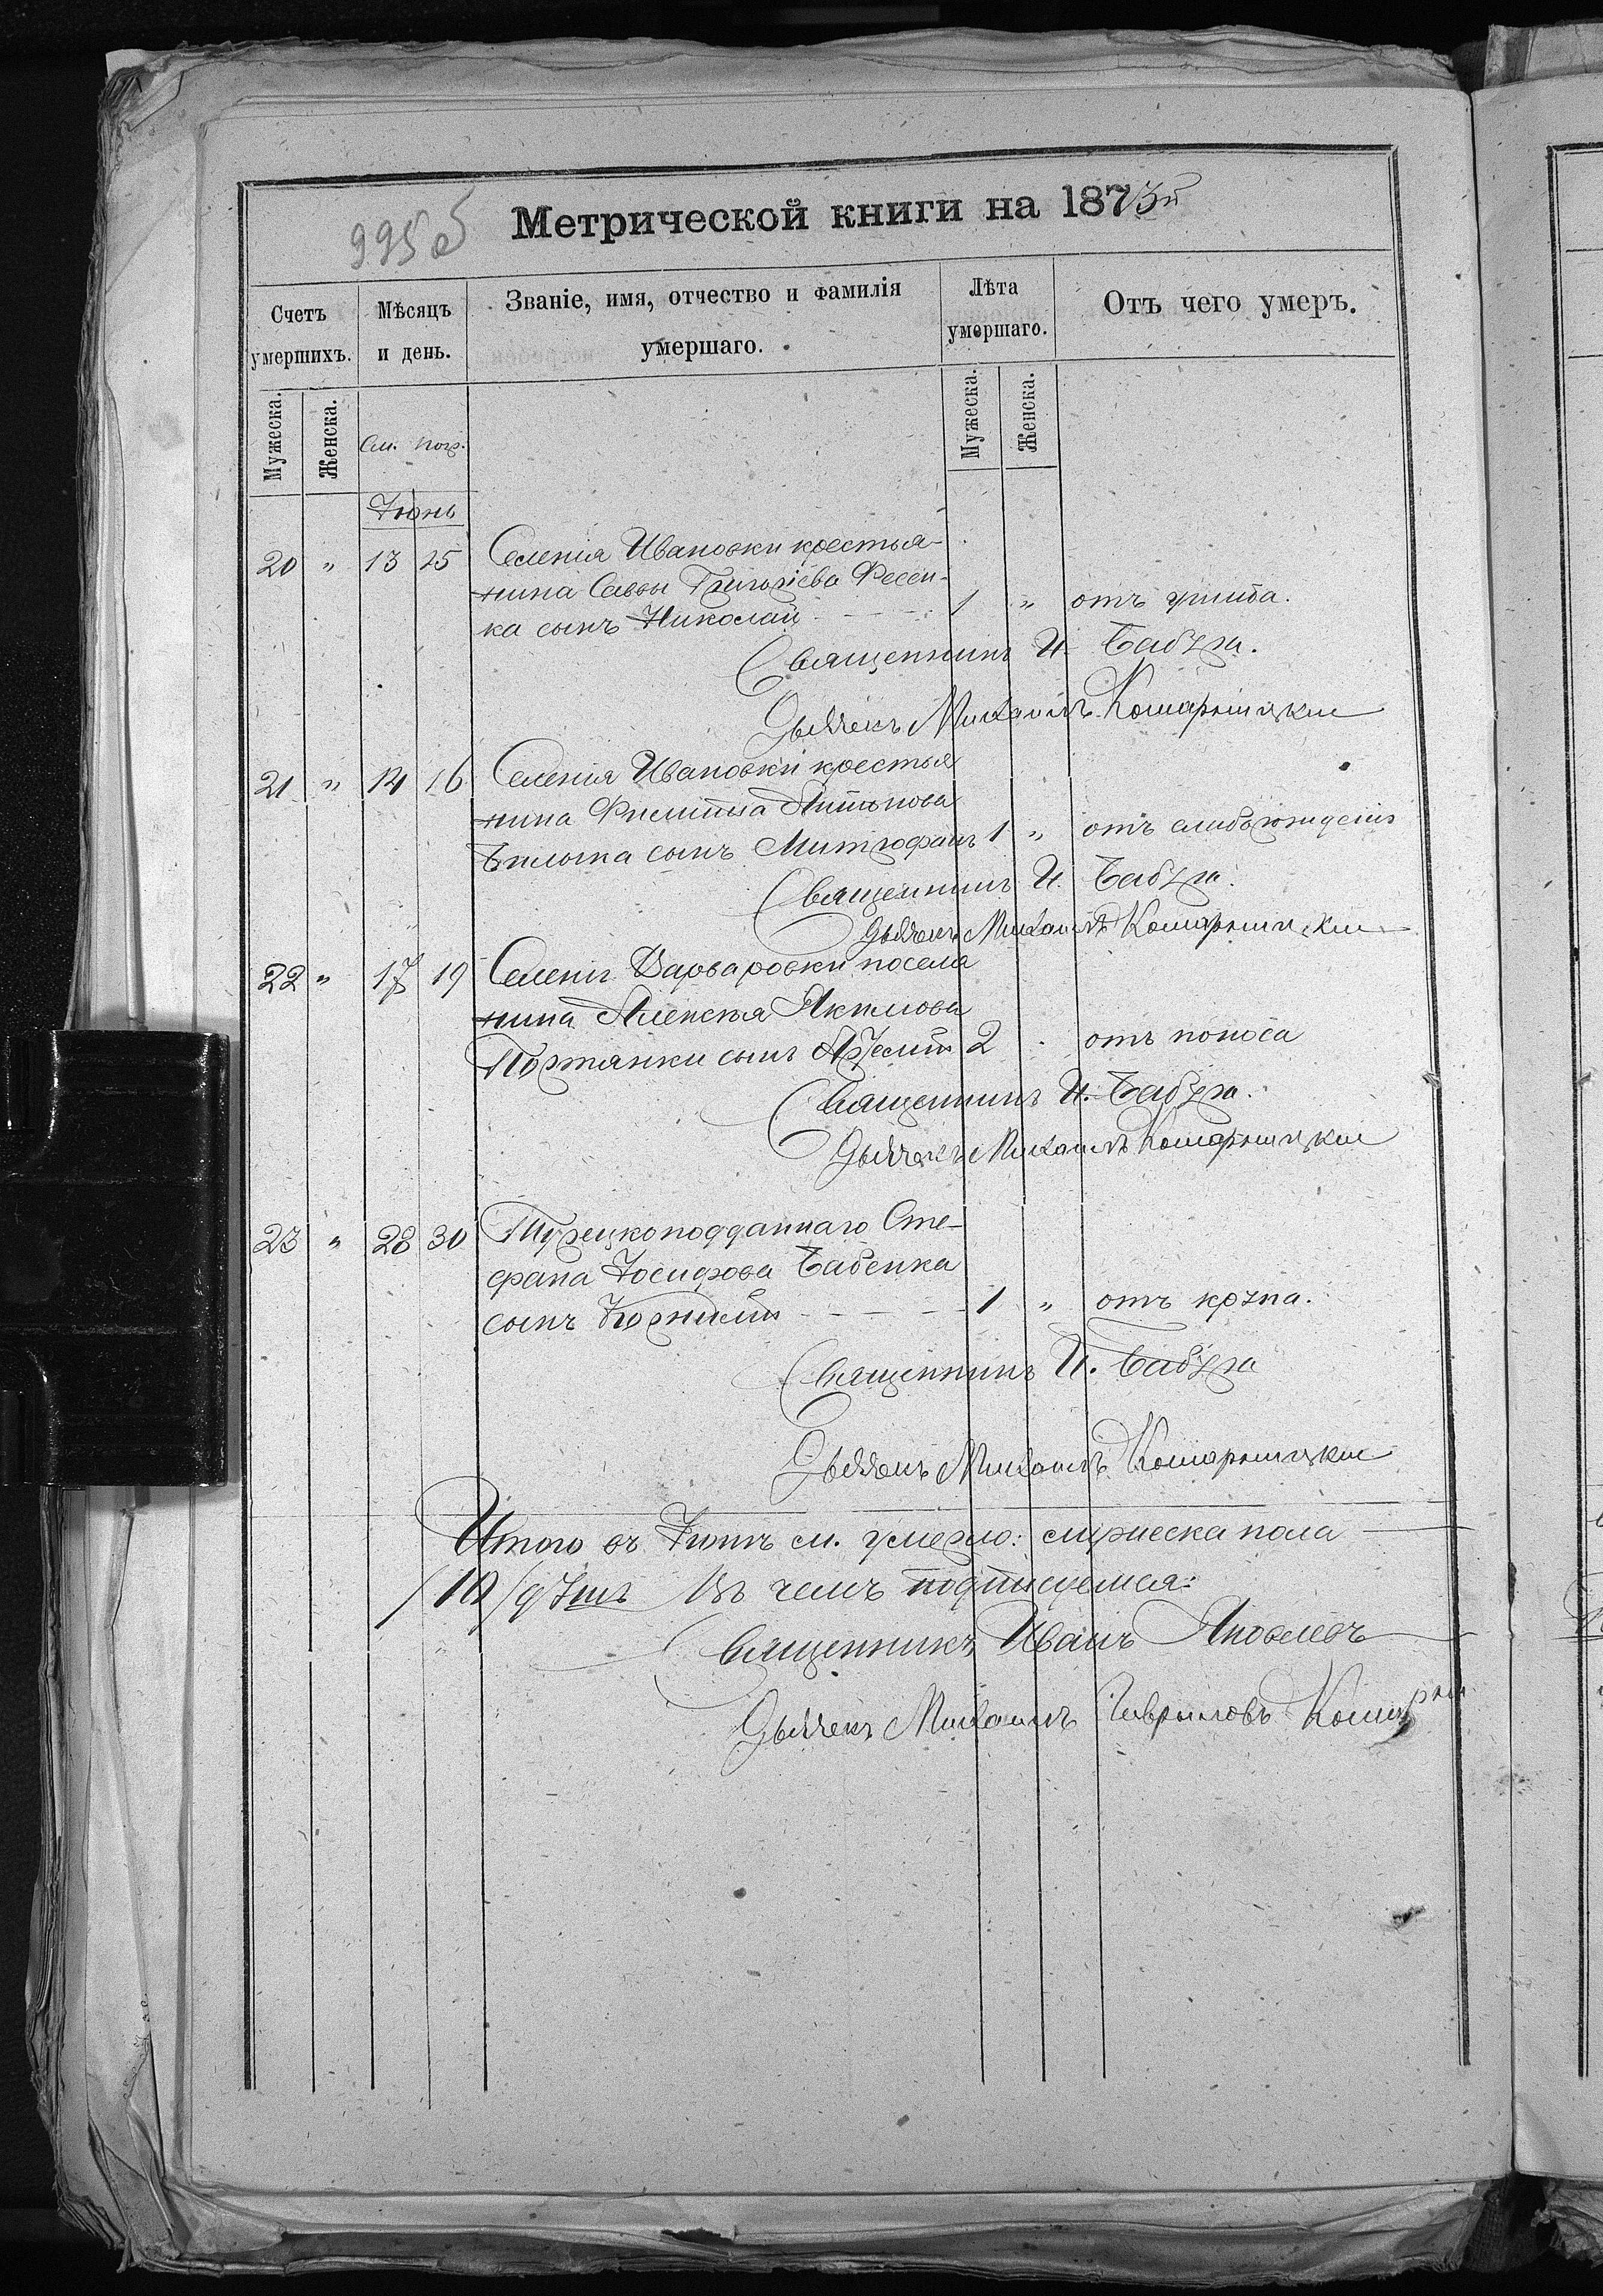 995 об
Метрической книги на 1873й
Счетъ умершихъ.
Мѣсяцъ и день.
Званіе, имя, отчество и фамилія умершаго.
Лѣта умершаго.
Отъ чего умеръ.
Мужеска.
Женска.
См. погр.
Мужеска.
Женска.
Іюнь
20 " 13 15 Селенія Ивановки крестья-
нина Саввы Григоріева Фесен-
ка сынъ Николай 1 " отъ ушиба.
Священникъ И. Бабура.
Дьячекъ Михаилъ Комарышцкій
21 " 14 16 Селенія Ивановки крестья
нина Филиппа
сынъ Митрофанъ 1 " отъ слаб. рожденія
Священникъ И. Бабура.
Дьячекъ Михаилъ Комарышцкій
22 " 17 19 Селенія Варваровки поселя
нина Алексѣя Якимова
Портянки сынъ 2 отъ поноса
Священникъ И. Бабура.
Дьячекъ Михаилъ Комарышцкій
23 " 28 30 Турецкоподданнаго Сте-
фана Іосифова Бабенка
сынъ Корнилій 1 " отъ крупа.
Священникъ И. Бабура
Дьячекъ Михаилъ Комарышцкій
Итого въ Іюнѣ м. умерло: мужеска пола
/10/ душъ Въ чемъ подписуемся:
Священникъ Иванъ Яковлевъ
Дьячекъ Михаилъ Гавриловъ